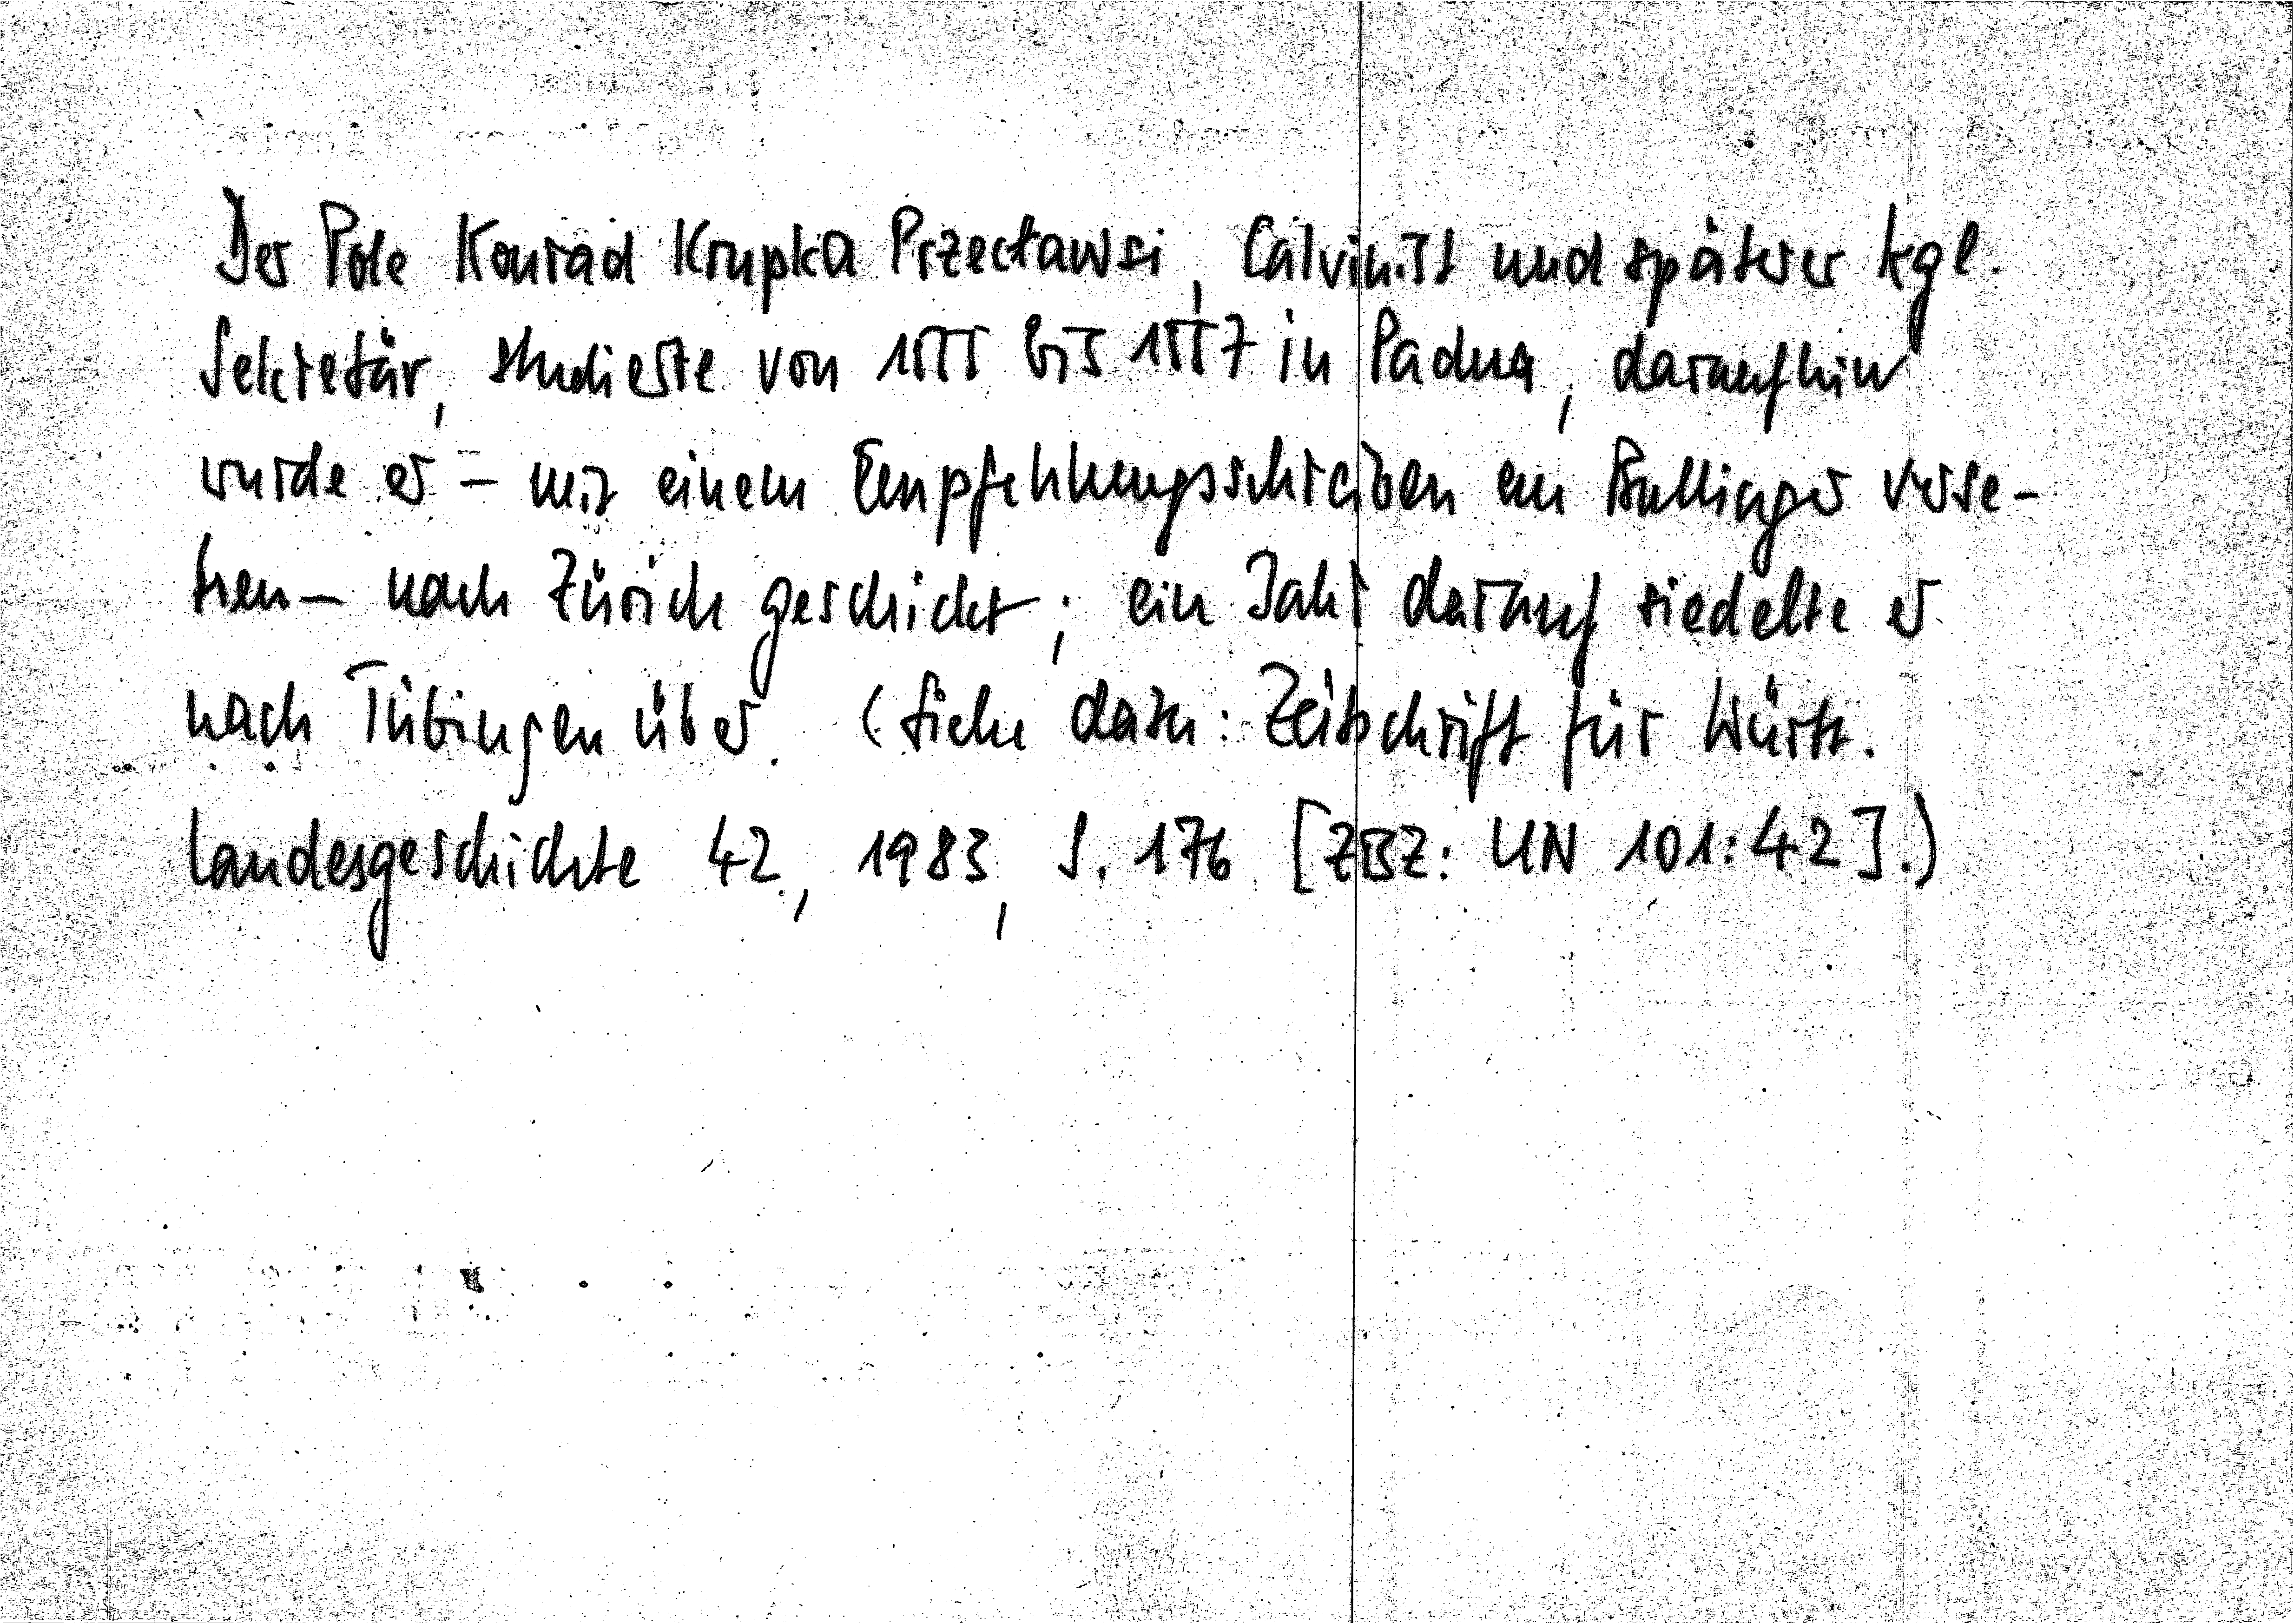 Der Pole Konrad Krupka Przectawsi, Calvinist und späterer kgl.
Sekretär, studierte von 1555 bis 1557 in Padua, daraufhin
wurde er – mit einem Empfehlungsschreiben an Bullinger verse-
hen – nach Zürich geschickt; ein Jahr darauf siedelte er
nach Tübingen über. (Siehe dazu: Zeitschrift für Württ.
Landesgeschichte 42, 1983, S. 176 [ZBZ: UN 101:42].)